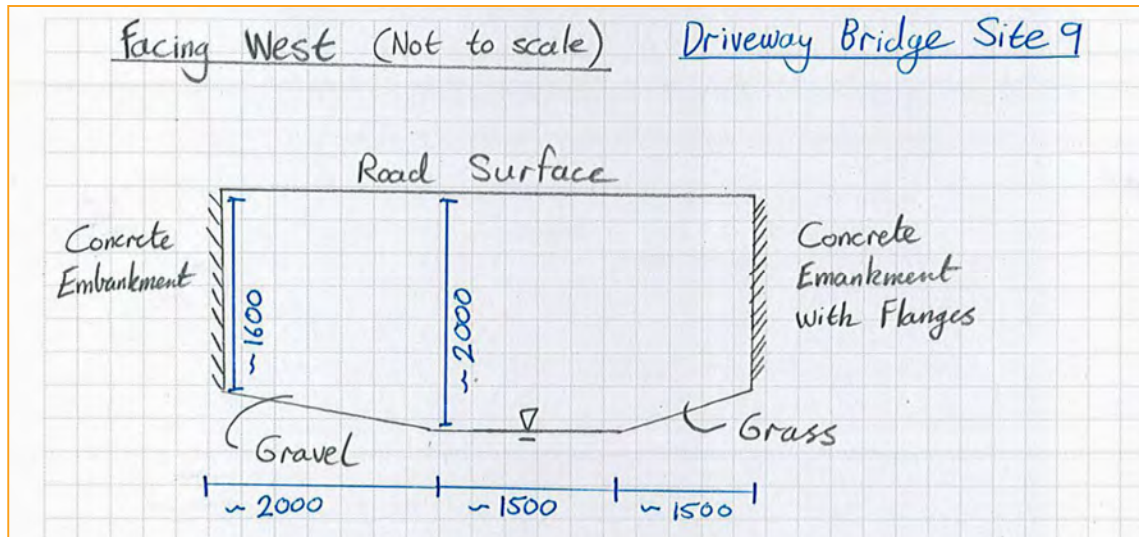 Facing West (Not to scale)
Driveway Bridge Site 9
Road Surface
Concrete
Embankment
~1600
~2000
Concrete
Emankment
with Flanges
Gravel
Grass
~2000
~1500
~1500